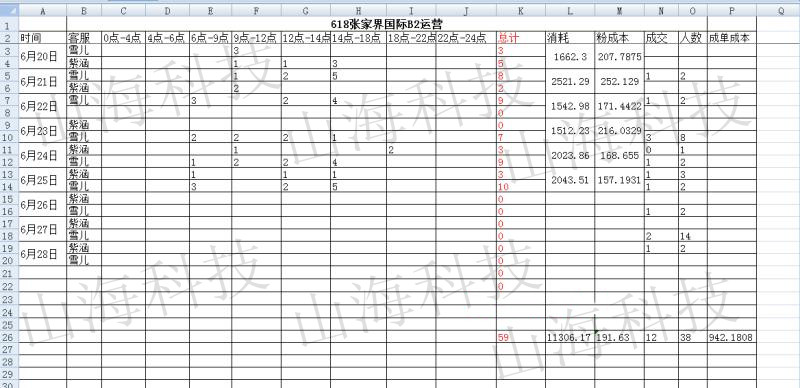 A B C D E F G H I J K L M N O P Q
1 618张家界国际B2运营
2 时间 客服 0点-4点 4点-6点 6点-9点 9点-12点 12点-14点 14点-18点 18点-22点 22点-24点 总计 消耗 粉成本 成交 人数 成单成本
3 6月20日 雪儿 3 3 1662.3 207.7875
4 紫涵 1 1 3 5
5 6月21日 雪儿 1 2 5 8 2521.29 252.129 1 2
6 紫涵 2 2
7 6月22日 雪儿 3 2 4 9 1542.98 171.4422 1 2
8 0
9 6月23日 紫涵 0 1512.23 216.0329
10 雪儿 2 2 2 1 7 3 8
11 6月24日 紫涵 1 2 3 2023.86 168.655 0 1
12 雪儿 1 2 2 4 9 1 2
13 6月25日 紫涵 1 1 1 3 2043.51 157.1931 1 3
14 雪儿 3 2 5 10 1 2
15 6月26日 紫涵 0
16 雪儿 0 1 2
17 6月27日 紫涵 0
18 雪儿 0 2 14
19 6月28日 紫涵 0 1 2
20 雪儿 0
21 0
22 0
25
26 59 11306.17 191.63 12 38 942.1808
27
28
29
30
山海科技
山海科技
山海科技
山海科技
山海科技
山海科技